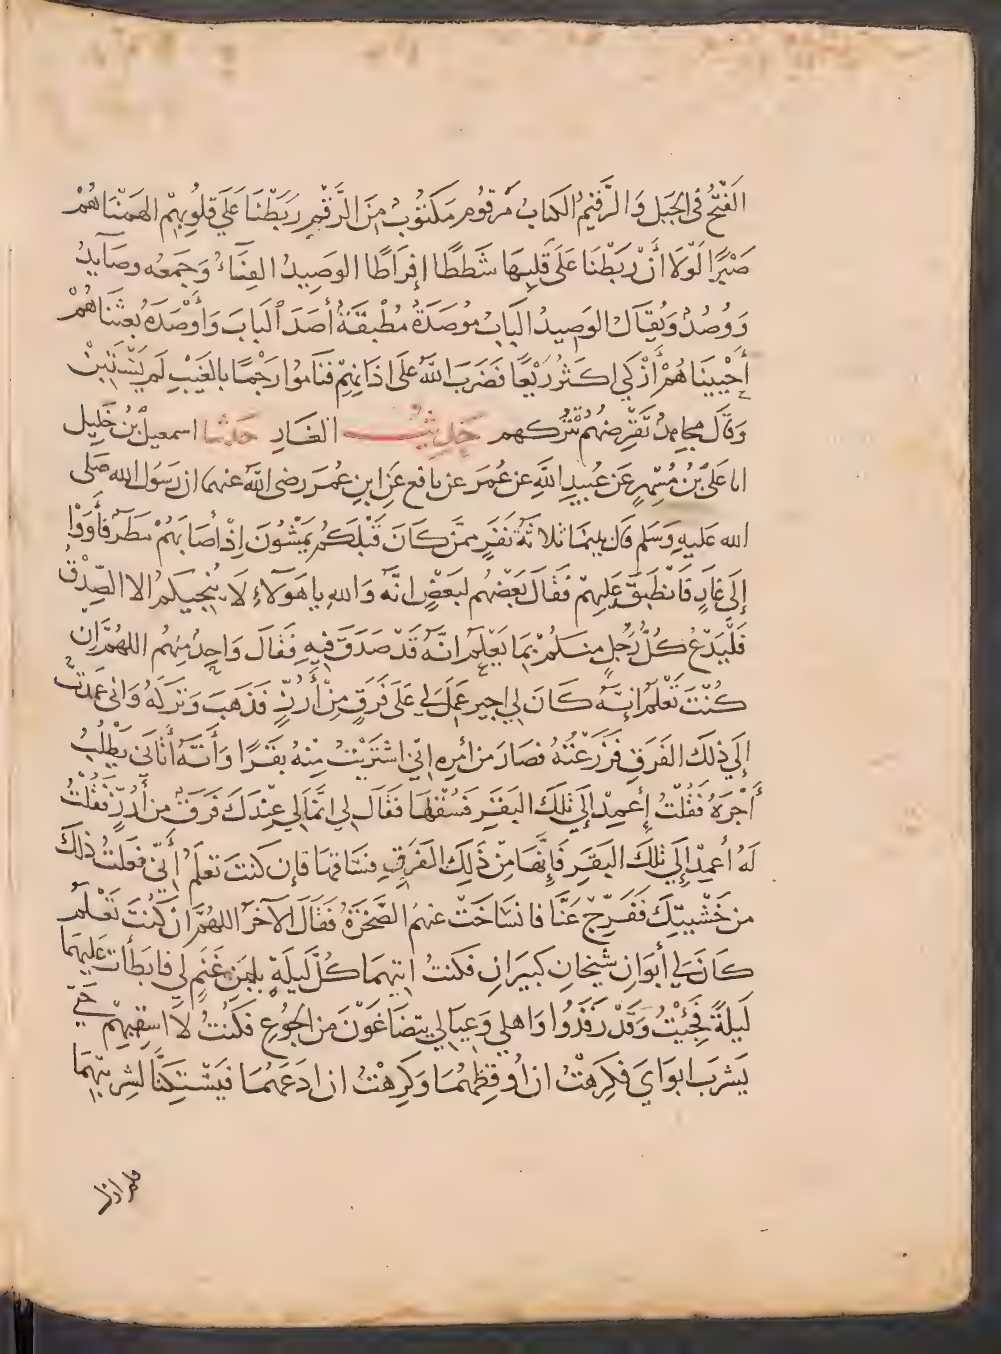 الفتح في الجبل والرقيم الكتاب مرقوم مكتوب من الرقم ربطنا على قلوبهم الهمناهم
صبرا لولا أن ربطنا على قلبها شططا إفراطا الوصيد الفناء وجمعه وصايد
ووصد ويقال الوصيد الباب موصدة مطبقة أصد الباب وأوصده بعثناهم
أحييناهم أزكى اكثر ريعا فضرب الله على اذانهم فناموا رجما بالغيب لم يستبن
وقال مجاهد تقرضهم تتركهم حديث الغار حدثنا اسمعيل بن خليل
انا علي بن مسهر عن عبيد الله عن عمر عن نافع عن ابن عمر رضي الله عنهما ان رسول الله صلى
الله عليه وسلم قال بينما ثلاثة نفر ممن كان قبلكم يمشون إذ أصابهم مطر فأووا
إلى غار فانطبق عليهم فقال بعضهم لبعض انه والله يا هولاء لا ينجيكم الا الصدق
فليدع كل رجل منكم بما يعلم انه قد صدق فيه فقال واحد منهم اللهم إن
كنت تعلم انه كان لي اجير عمل لي على فرق من أرز فذهب وتركه واني عمدت
إلى ذلك الفرق فزرعته فصار من أمره إني اشتريت منه بقرا وأنه أتاني يطلب
أجره فقلت إعمد إلى تلك البقر فسقها فقال لي انما لي عندك فرق من أرز فقلت
له أعمد إلى تلك البقر فإنها من ذلك الفرق فساقها فإن كنت تعلم أني فعلت ذلك
من خشيتك ففرج عنا فانساخت عنهم الصخرة فقال الآخر اللهم ان كنت تعلم
كان لي أبوان شيخان كبيران فكنت اتيهما كل ليلة بلبن غنم لي فابطأت عليهما
ليلة فجئت وقد رقدوا واهلي وعيالي يتضاغون من الجوع فكنت لا اسقيهم حتى
يشرب ابواي فكرهت ان اوقظهما وكرهت ان ادعهما فيستكنا لشربتهما
فلم ازل